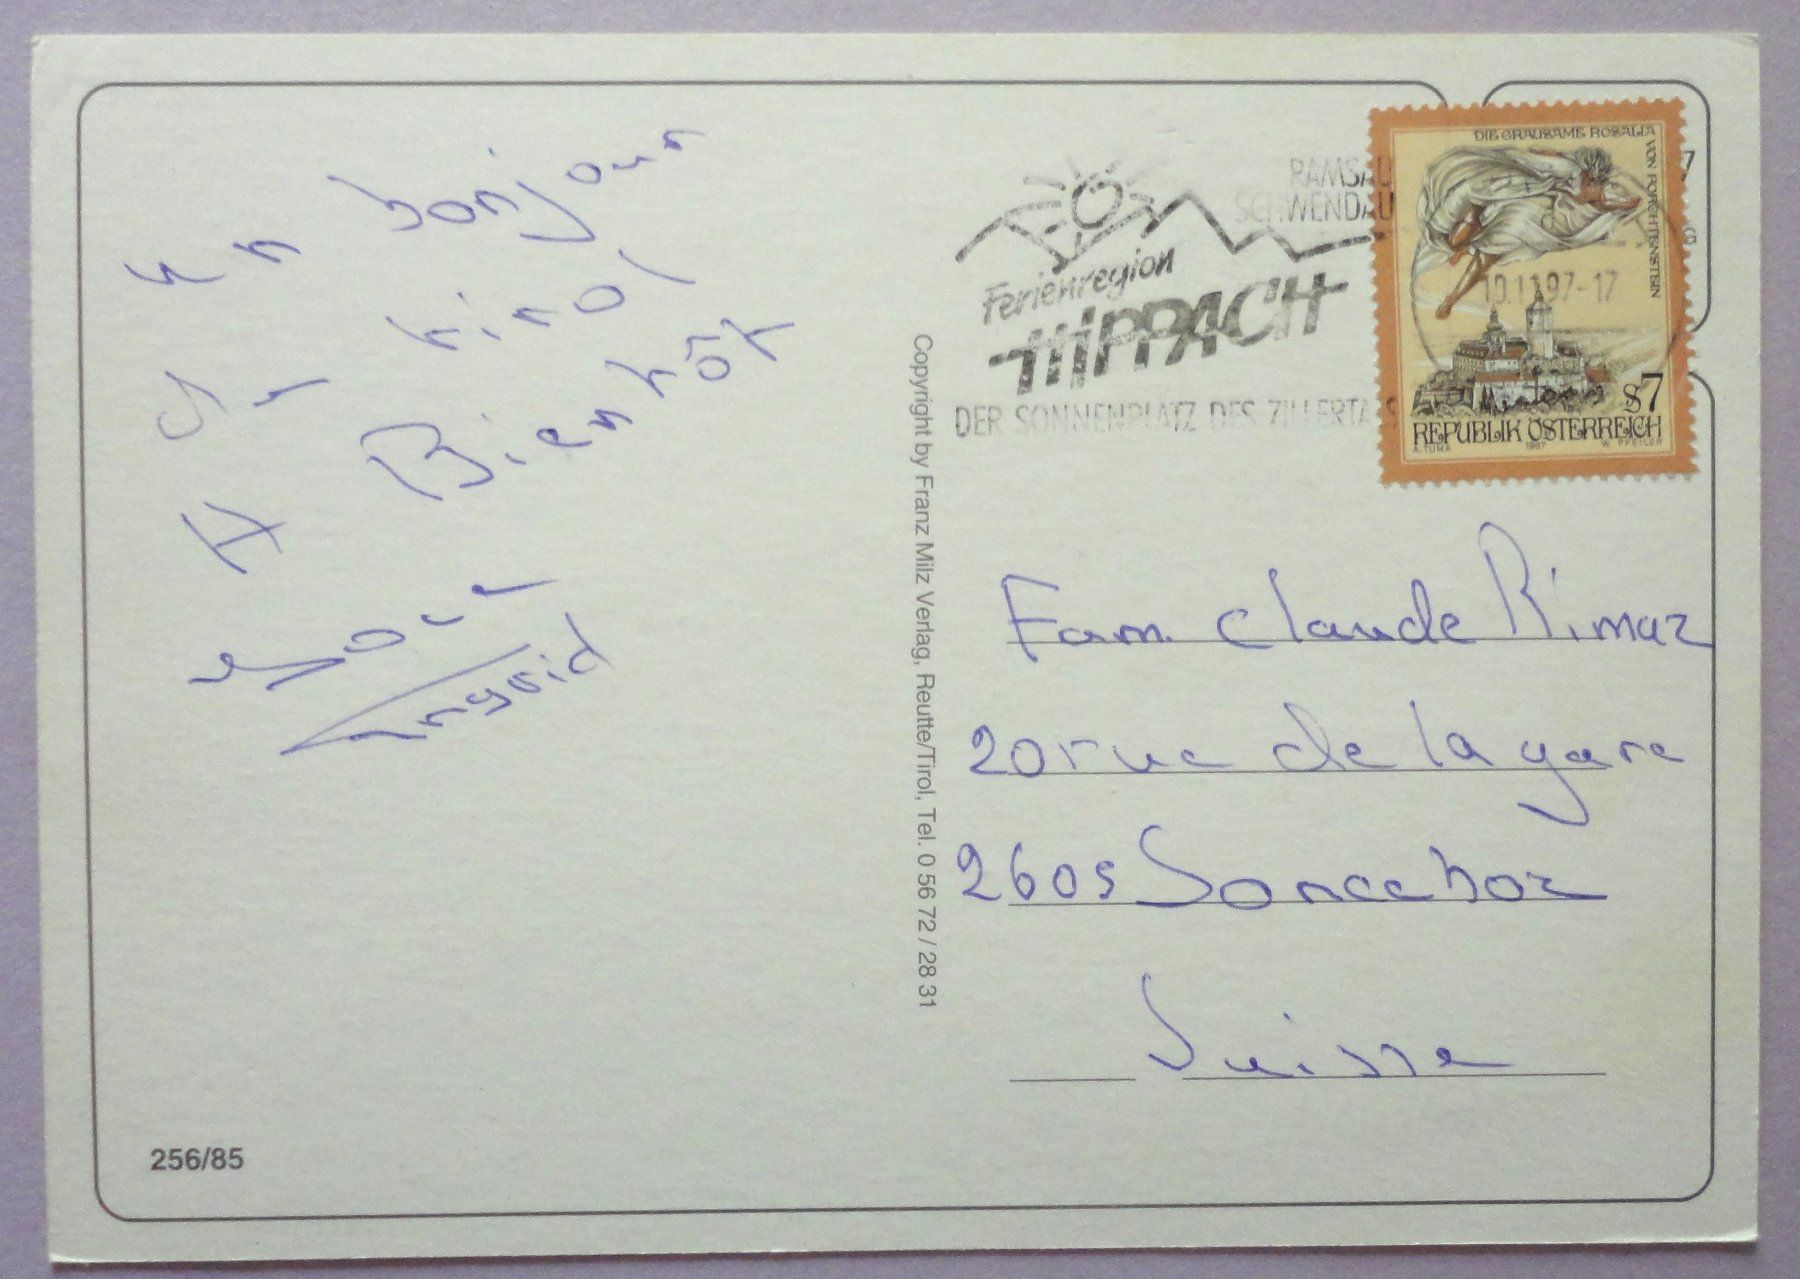 Un bonjour
Tirol
A Bientôt
Ingrid
RAMSAU
SCHWENDAU
Ferienregion
HIPPACH
DER SONNENPLATZ DES ZILLERTALS
10.11.97-17
DIE GRAUSAME ROSALIA
VON FORCHTENSTEIN
S7
REPUBLIK ÖSTERREICH
A. TUMA 1997 W. PFEILER
Copyright by Franz Milz Verlag, Reutte/Tirol, Tel. 0 56 72 / 28 31
Fam. Claude Rimaz
20 rue de la gare
2605 Sonceboz
Suisse
256/85